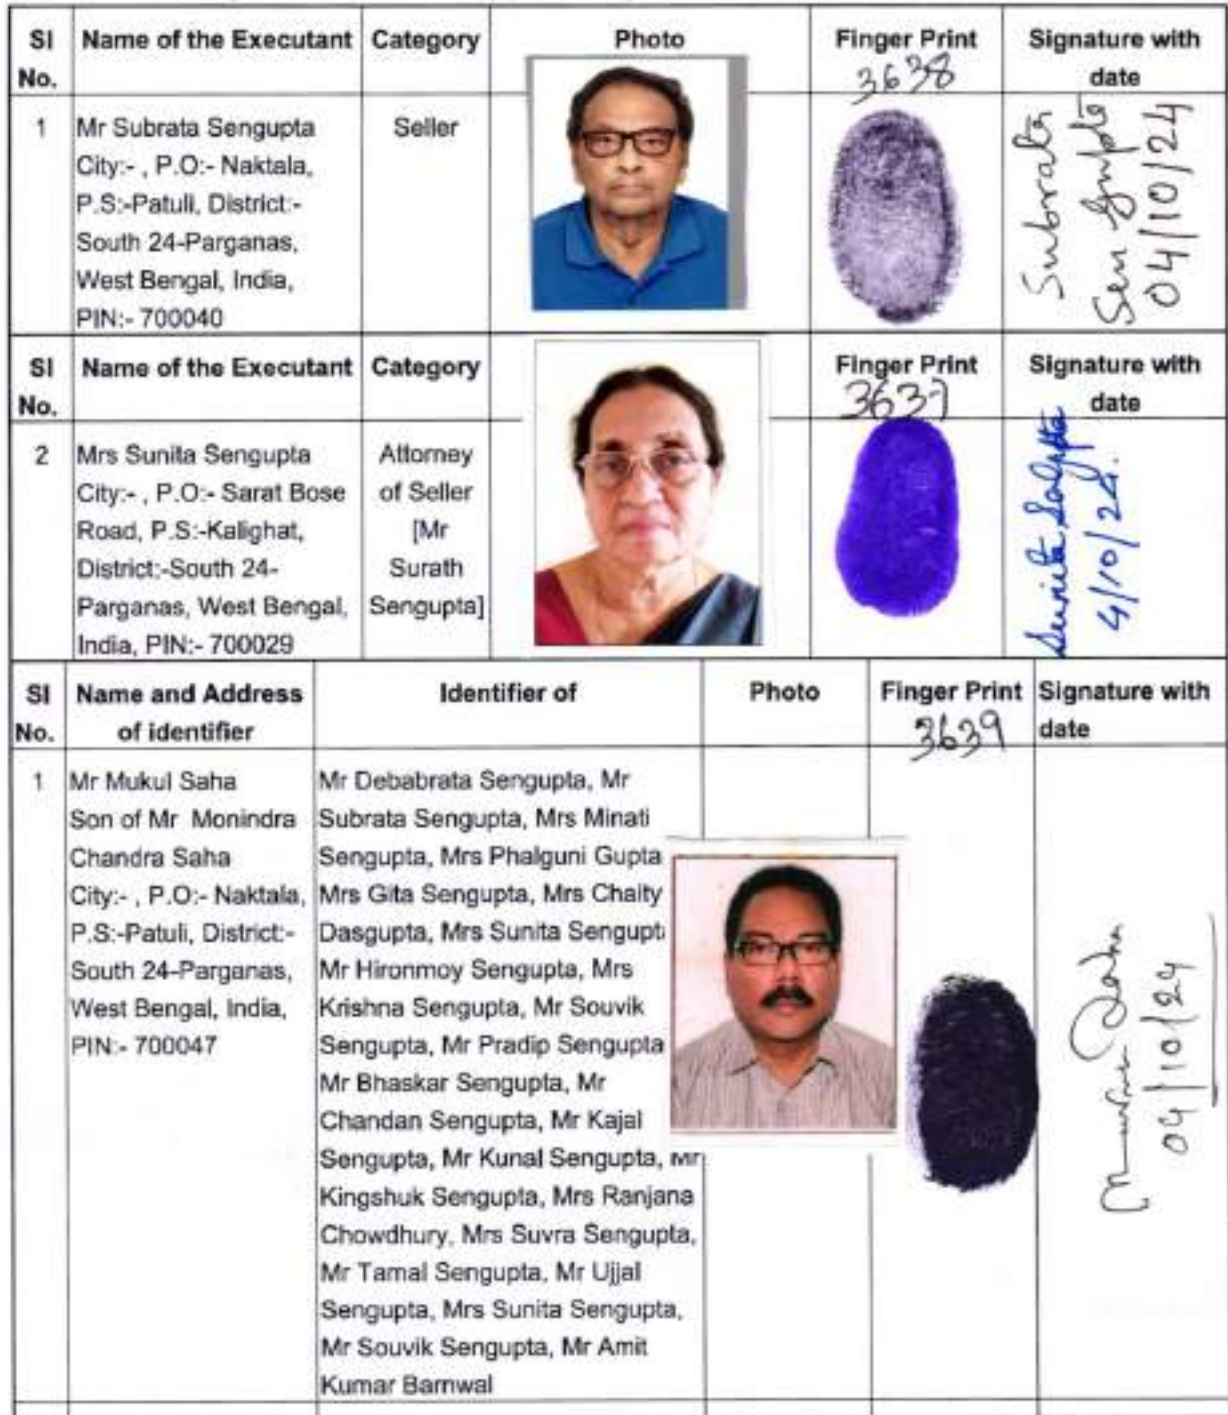 Sl No. Name of the Executant Category Photo Finger Print Signature with date
3638
1 Mr Subrata Sengupta Seller
City:- , P.O:- Naktala,
P.S:-Patuli, District:-
South 24-Parganas,
West Bengal, India,
PIN:- 700040
Subrata
Sen Gupta
04/10/24
Sl No. Name of the Executant Category Finger Print Signature with date
3637
2 Mrs Sunita Sengupta
City:- , P.O:- Sarat Bose
Road, P.S:-Kalighat,
District:-South 24-
Parganas, West Bengal,
India, PIN:- 700029
Attorney
of Seller
[Mr
Surath
Sengupta]
Sunita
4/10/24.
Sl No. Name and Address of identifier Identifier of Photo Finger Print Signature with date
3639
1 Mr Mukul Saha
Son of Mr Monindra
Chandra Saha
City:- , P.O:- Naktala,
P.S:-Patuli, District:-
South 24-Parganas,
West Bengal, India,
PIN:- 700047
Mr Debabrata Sengupta, Mr
Subrata Sengupta, Mrs Minati
Sengupta, Mrs Phalguni Gupta
Mrs Gita Sengupta, Mrs Chaity
Dasgupta, Mrs Sunita Sengupt
Mr Hironmoy Sengupta, Mrs
Krishna Sengupta, Mr Souvik
Sengupta, Mr Pradip Sengupta
Mr Bhaskar Sengupta, Mr
Chandan Sengupta, Mr Kajal
Sengupta, Mr Kunal Sengupta, Mr
Kingshuk Sengupta, Mrs Ranjana
Chowdhury, Mrs Suvra Sengupta,
Mr Tamal Sengupta, Mr Ujjal
Sengupta, Mrs Sunita Sengupta,
Mr Souvik Sengupta, Mr Amit
Kumar Barnwal
04/10/24